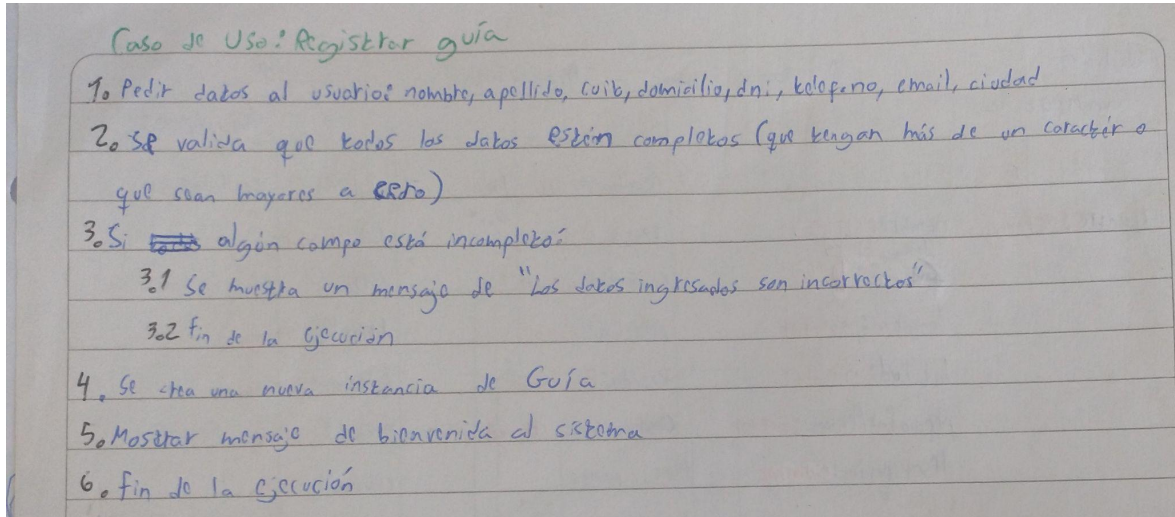 Caso de Uso: Registrar guía
1. Pedir datos al usuario: nombre, apellido, cuit, domicilio, dni, telefono, email, ciudad
2. se valida que todos los datos estén completos (que tengan más de un carácter o
que sean mayores a cero)
3. Si algún campo está incompleto:
3.1 Se muestra un mensaje de "Los datos ingresados son incorrectos"
3.2 fin de la ejecución
4. Se crea una nueva instancia de Guía
5. Mostrar mensaje de bienvenida al sistema
6. fin de la ejecución